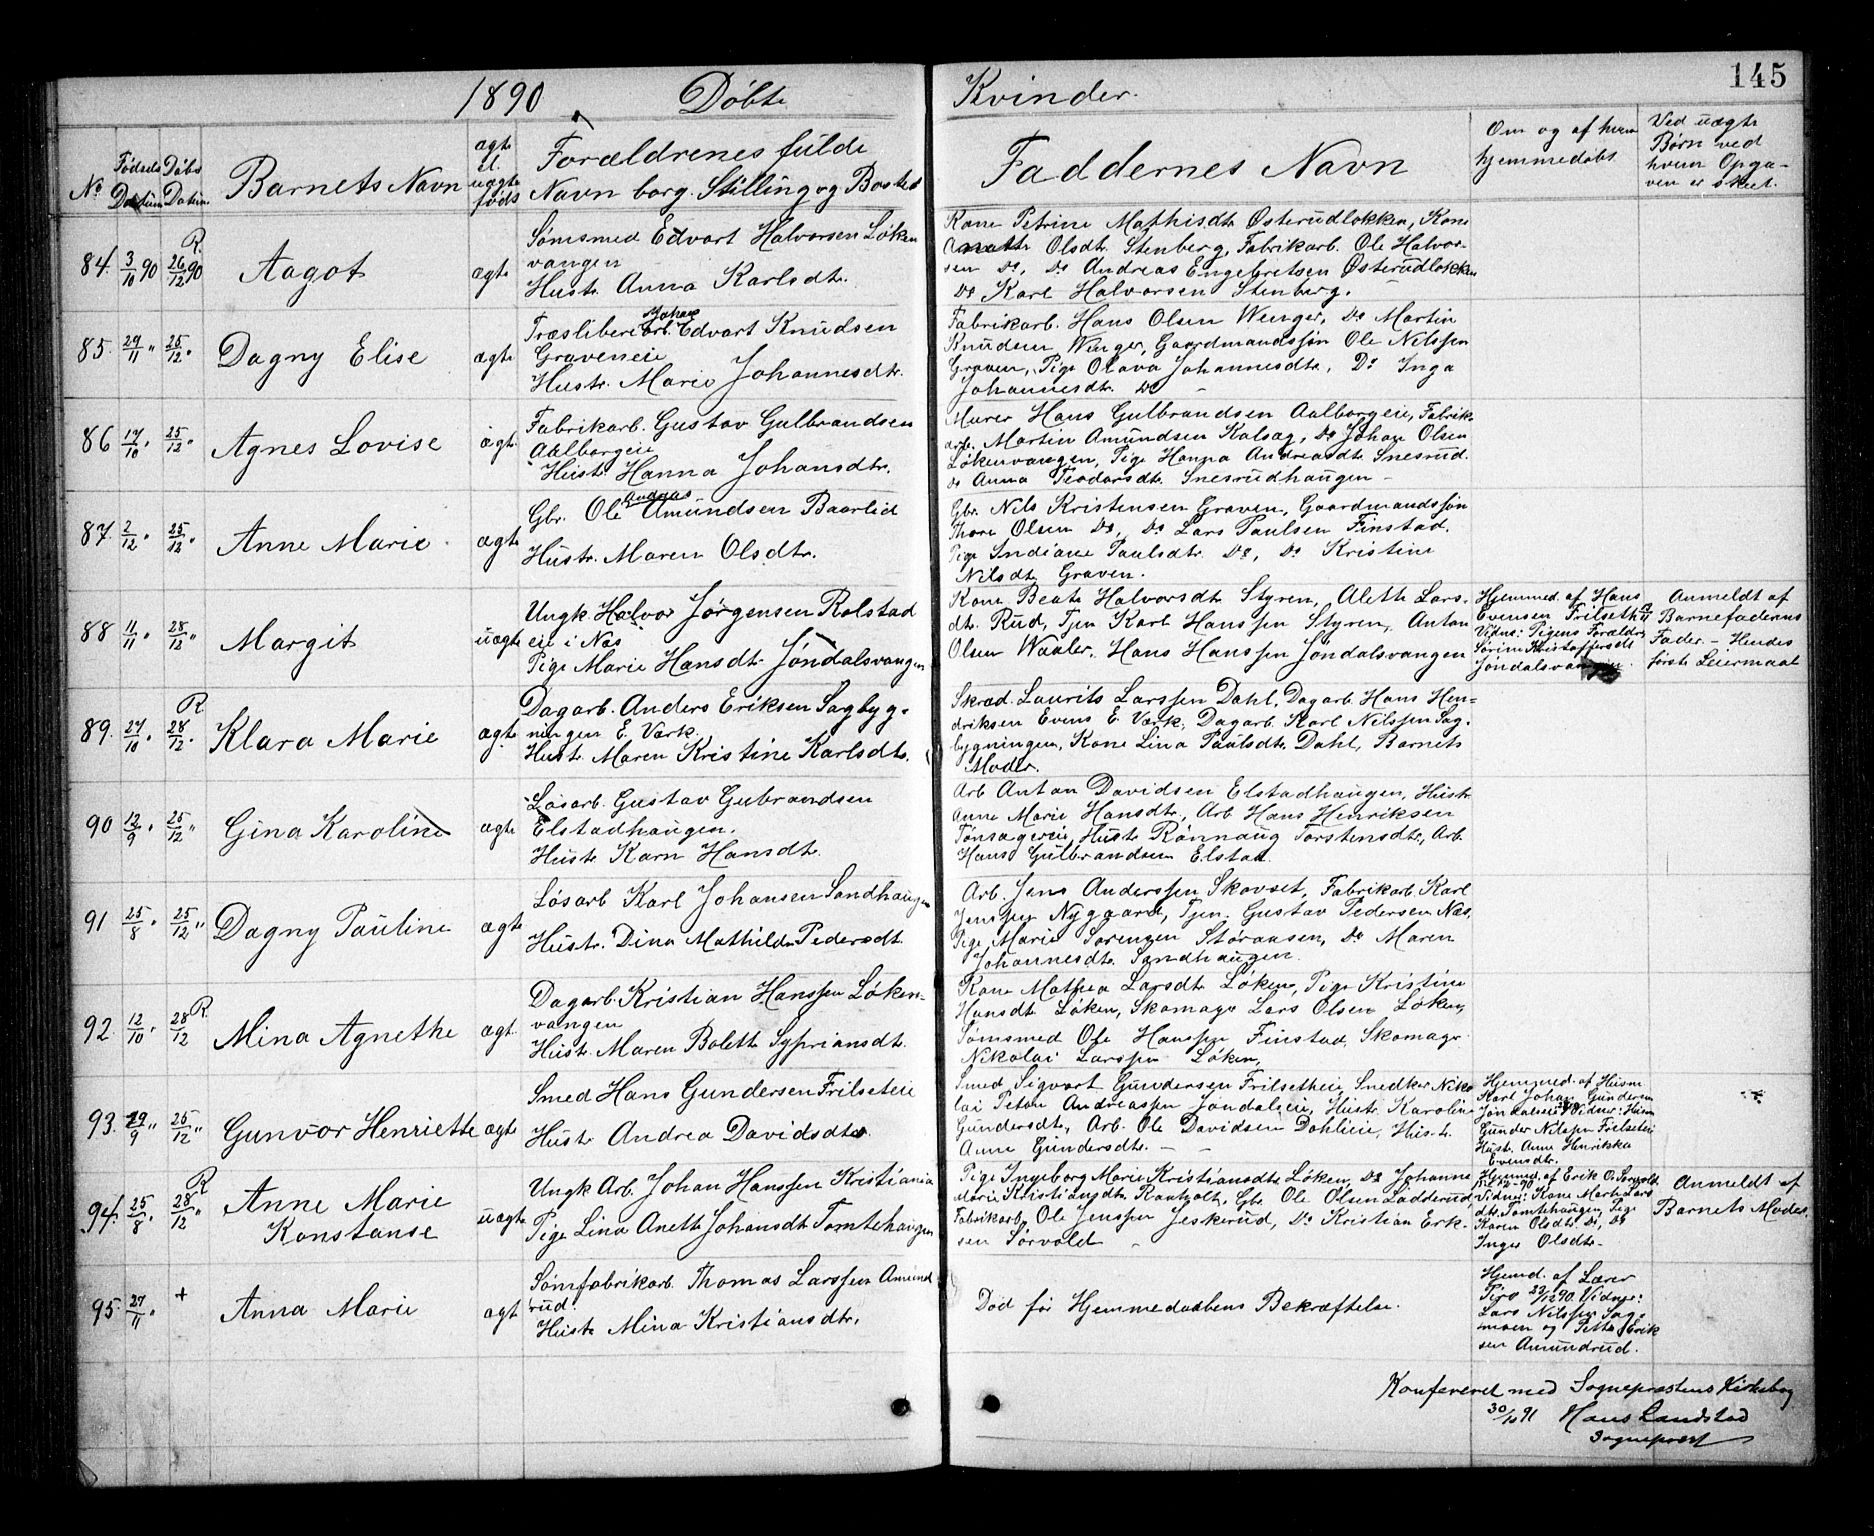 145
1890 Døbte Kvinder.
No
Fødsels Datum
Døbs Datum
Barnets Navn
ægte el. uægte føds
Forældrenes fulde
Navn borg. Stilling og Bosted
Faddernes Navn
Om og af hvem
hjemmedøbt
Ved uægte
Børn ved
hvem Opga-
ven er skeet.
84. 3/10 90 R. 26/12 90 Aagot ægte
Sømsmed Edvart Halvorsen Løken
vangen
Hustr. Anna Karlsdtr.
Kone Petrine Mathisdtr. Østerudløkken, Kone
Olsdtr. Stenberg, Fabrikarb. Ole Halvor-
sen Do, Do Andreas Engebretsen Østerudløkken
Do Karl Halvorsen Stenberg.
85. 29/11 " 25/12 " Dagny Elise ægte
Johan
Træsliberiarb. Edvart Knudsen
Graveneie
Hustr. Marie Johannesdtr.
Fabrikarb. Hans Olsen Wenger, Do Martin
Knudsen Wenger, Gaardmandssøn Ole Nilssen
Graven, Pige Olava Johannesdtr, Do Inga
Johannesdtr. Do -
86 17/10 " 25/12 " Agnes Lovise ægte
Fabrikarb. Gustav Gulbrandsen
Aalborgeie
Hustr. Hanna Johansdtr.
Murer Hans Gulbrandsen Aalborgeie, Fabrik-
arb. Martin Amundsen Kalsæg, Do Johan Olsen
Løkenvangen, Pige Hanna Andreasdtr Snesrud.
Do Anna Teodorsdtr. Snesrudhaugen -
87. 2/12 " 25/12 " Anne Marie ægte
Andreas
Gbr. Ole Amundsen Baarlid
Hustr. Maren Olsdtr.
Gbr. Nils Kristensen Graven, Gaardmandssøn
Thore Olsen Do, Do Lars Paulsen Finstad.
Pige Indiane Paulsdtr. Do, Do Kristine
Nilsdtr. Graven.
88 11/11 " 28/12 " Margit uægte
Ungk. Halvor Jørgensen Rolstad
eie i Næs
Pige Marie Hansdtr. Jøndalsvangen
Kone Beate Halvorsdtr Styren, Aleth Lars-
dtr. Rud, Tjen Karl Hanssen Styren, Anton
Olsen Waaler, Hans Hanssen Jøndalsvangen
Hjemmed. af Hans
Evensen Frilseth
Vidne: Pigens Forældre
Sørine Kristoffersdtr
Jøndalsvangen.
Anmeldt af
Barnefaderens
Fader. - Hendes
første Leiermaal
89. 27/10 " R. 28/12 " Klara Marie ægte
Dagarb. Anders Eriksen Sagbyg-
ningen E. Værk.
Hustr. Maren Kristine Karlsdtr.
Skræd. Laurits Larssen Dahl, Dagarb. Hans Hen-
driksen Evens E. Værk, Dagarb. Karl Nilssen Sag-
bygningen, Kone Lina Paulsdtr. Dahl, Barnets
Moder.
90 12/9 " 25/12 " Gina Karoline ægte
Løsarb. Gustav Gubrandsen
Elstadhaugen.
Hustr. Karn Hansdtr.
Arb. Anton Davidsen Elstadhaugen, Hustr.
Anne Marie Hansdtr, Arb. Hans Henriksen
Tønsagereie, Hustr. Rønnaug Torstensdtr, Arb.
Hans Gulbrandsen Elstad.
91 25/8 " 25/12 " Dagny Pauline ægte
Løsarb Karl Johansen Sandhaugen
Hustr. Dina Mathilde Pedersdtr.
Arb. Jens Anderssen Skovset, Fabrikarb. Karl
Jenssen Nygaard, Tjen. Gustav Pedersen Næs,
Pige Marie Sorensen Støraasen, Do Maren
Johannesdtr. Sandhaugen.
92. 12/10 " R. 28/12 Mina Agnethe ægt.
Dagarb. Kristian Hanssen Løken-
vangen
Hustr. Maren Bolette Sypriansdtr.
Kone Mathea Larsdtr Løken, Pige Kristine
Hansdtr Løken, Skomager Lars Olsen Løken,
Sømsmed Ole Hanssen Finstad, Skomager
Nikolai Larssen Løken,
93. 29/9 " 25/12 " Gunvor Henriette ægte
Smed Hans Gundersen Frilseteie
Hustr Andrea Davidsdtr.
Smed Sigvart Gundersen Frilsetheie, Snedker Niko
lai Peter Andreassen Jøndalseie, Hustr. Karoline
Gundersdtr, Arb. Ole Davidsen Dahleie, Hustr.
Anne Gundersdtr. - -
Hjemmed. af Husm
Karl Johan Gundersen
Jøndalseie Vidner: Husm
Gunder Nilssen Frilseteie
Hustr. Anne Henrikke
Evensdtr.
94. 25/8 " R 28/12 " Anne Marie
Konstanse uægte
Ungk Arb. Johan Hanssen Kristiania
Pige Lina Anette Johansdtr Tomtehaugen
Pige Ingeborg Marie Kristiansdtr. Løken, Do Johanne
Marie Kristiansdtr. Raaholt, Gbr. Ole Olsen Ladderud,
Fabrikarb. Ole Jenssen Jeskerud, Do Kristian Erik-
sen Sørvold -
Hjemmed. af Erik O. Sørvold
Vidner: Kone Marthe Lars
dtr. Tomtehaugen, Pige
Karen Olsdtr. Do, Do
Inger Olsdtr.
Anmeldt af
Barnets Moder.
95. 27/11 " + Anna Marie ægt.
Sømfabrikarb. Thomas Larssen Amund
rud.
Hustr. Mina Kristiansdtr,
Død før Hjemmedaabens Bekræftelse.
Hjemd. af Lærer
Piro 29/12 90. Vidner:
Lars Nilssen Sag-
moen og Petter Erik
sen Amundrud.
Konfereret med Sogneprestens Kirkebog
30/10 91 Hans Landstad
Sogneprest